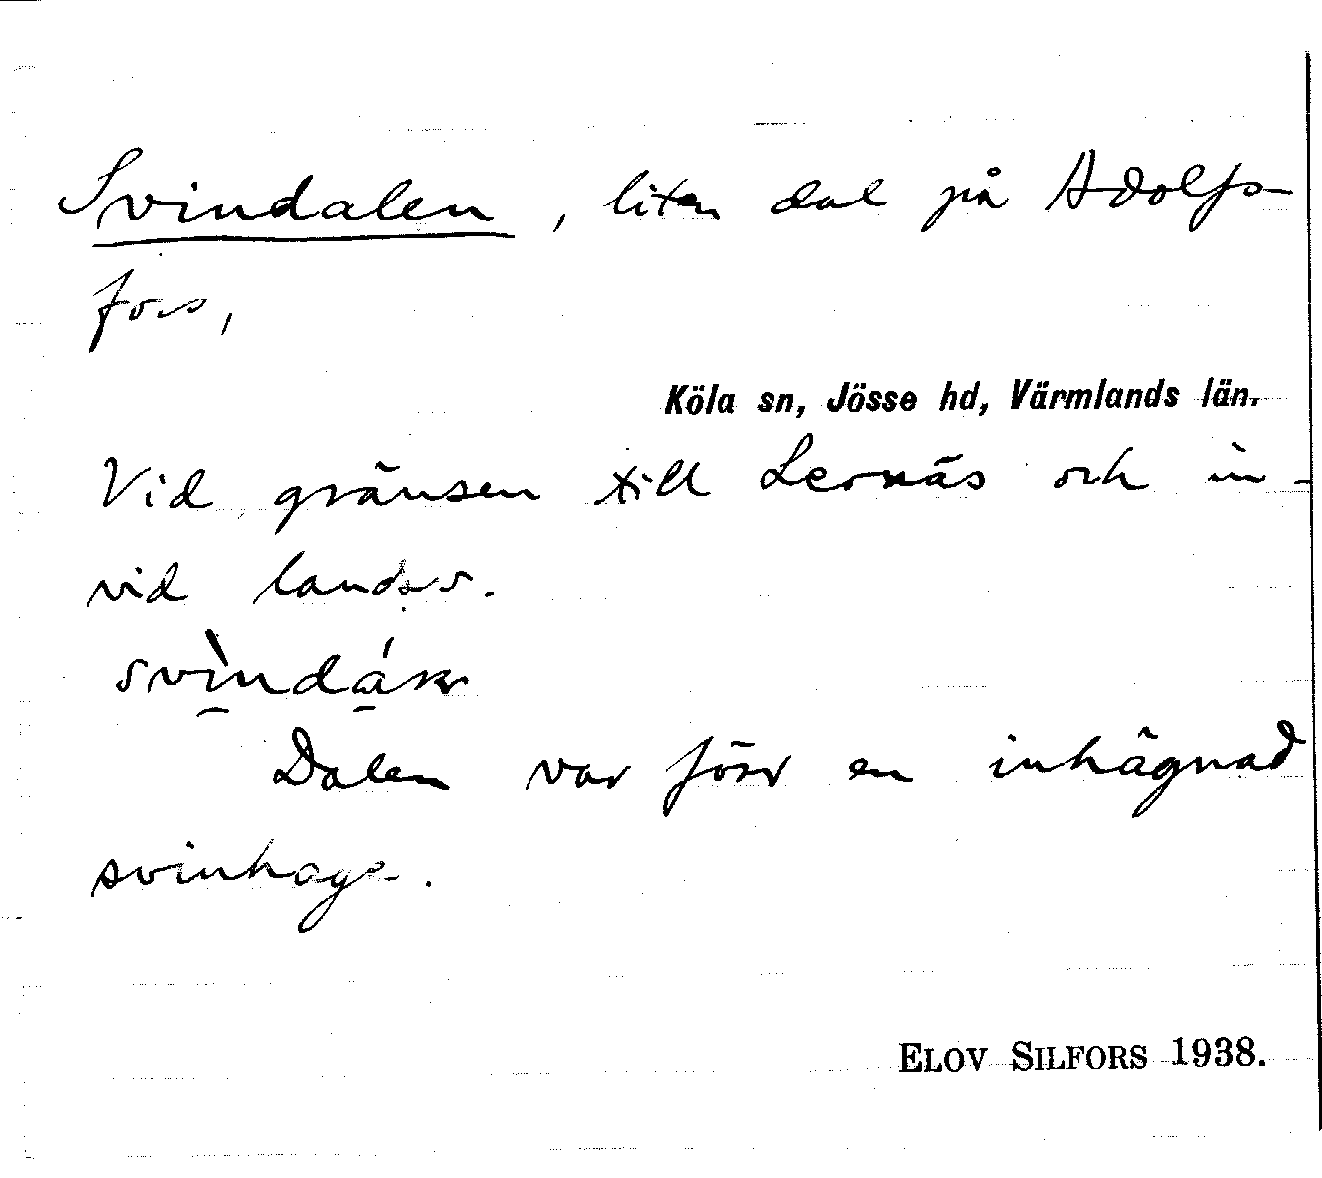 Svindalen, liten dal på Adolfs-
fors,
Köla sn, Jösse hd, Värmlands län.
Vid gränsen till Lernäs och in-
vid landsv.
Dalen var förr en inhägnad
svinhage.
ELOV SILFORS 1938.